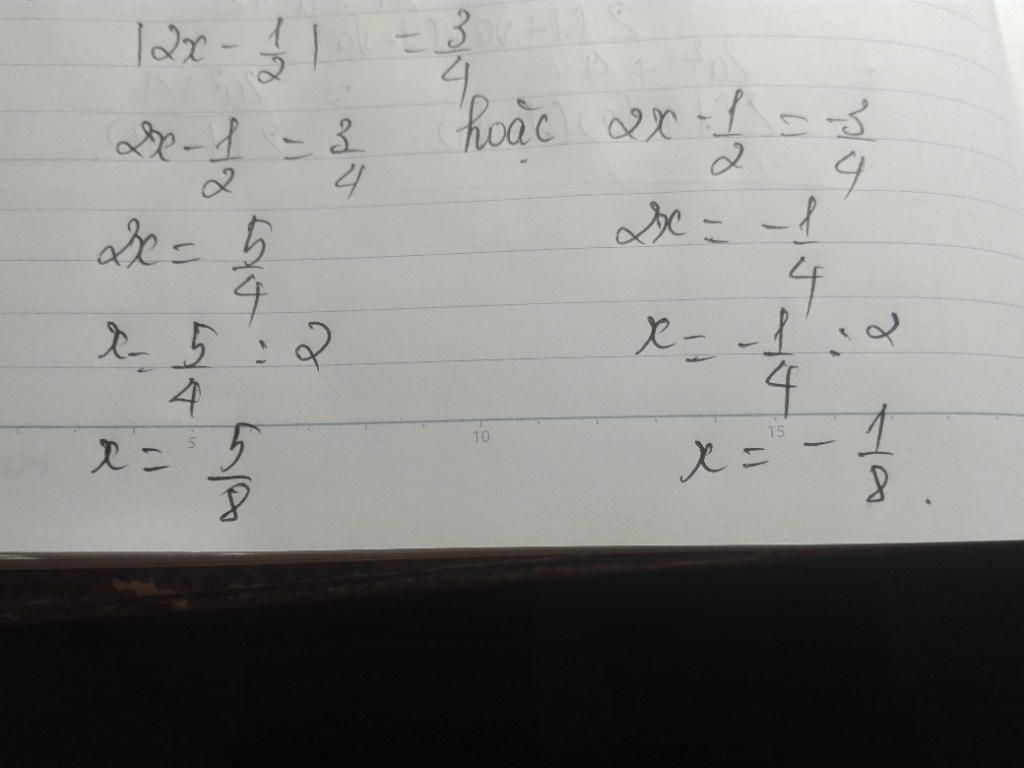 |2x - 1/2| = 3/4
2x - 1/2 = 3/4 hoặc 2x - 1/2 = -3/4
2x = 5/4 2x = -1/4
x = 5/4 : 2 x = -1/4 : 2
5 10 15
x = 5/8 x = -1/8.